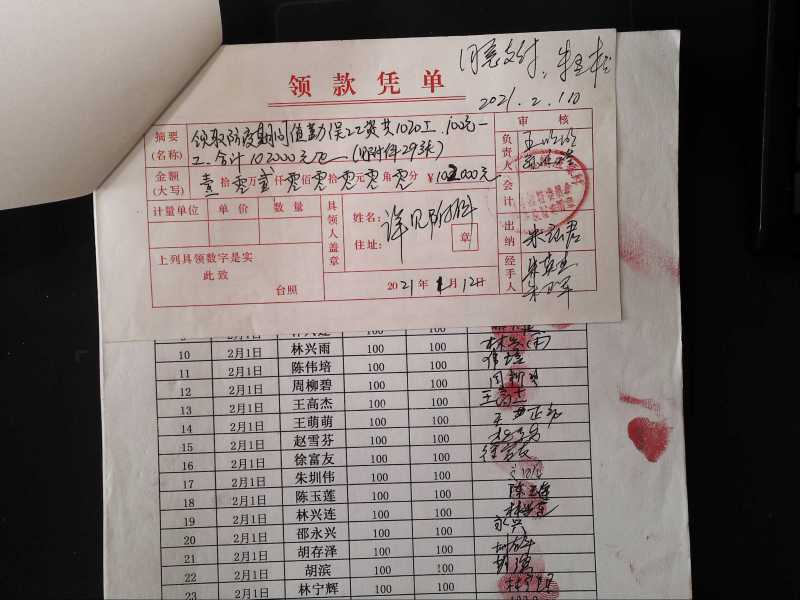 同意支付
2021.2.10
领款凭单
摘要
(名称)
领取防疫期间值勤误工资共1030工.100元一
工.合计102000元正(见附件29张)
审核
负责人
会计
出纳
经手人
金额
(大写)
壹拾零万贰仟零佰零拾零元零角零分 ¥102000元
计量单位 单价 数量
具领人盖章
姓名:
住址:
详见附件
章
上列具领数字是实
此致
台照
2021年1月12日
朱
10 2月1日 林兴雨 100 100
11 2月1日 陈伟培 100 100
12 2月1日 周柳碧 100 100
13 2月1日 王高杰 100 100 王高杰
14 2月1日 王萌萌 100 100
15 2月1日 赵雪芬 100 100
16 2月1日 徐富友 100 100 徐富友
17 2月1日 朱圳伟 100 100
18 2月1日 陈玉莲 100 100 陈玉莲
19 2月1日 林兴连 100 100 林兴连
20 2月1日 邵永兴 100 100 永兴
21 2月1日 胡存泽 100 100
22 2月1日 胡滨 100 100 胡滨
23 2月1日 林宁辉 100 100